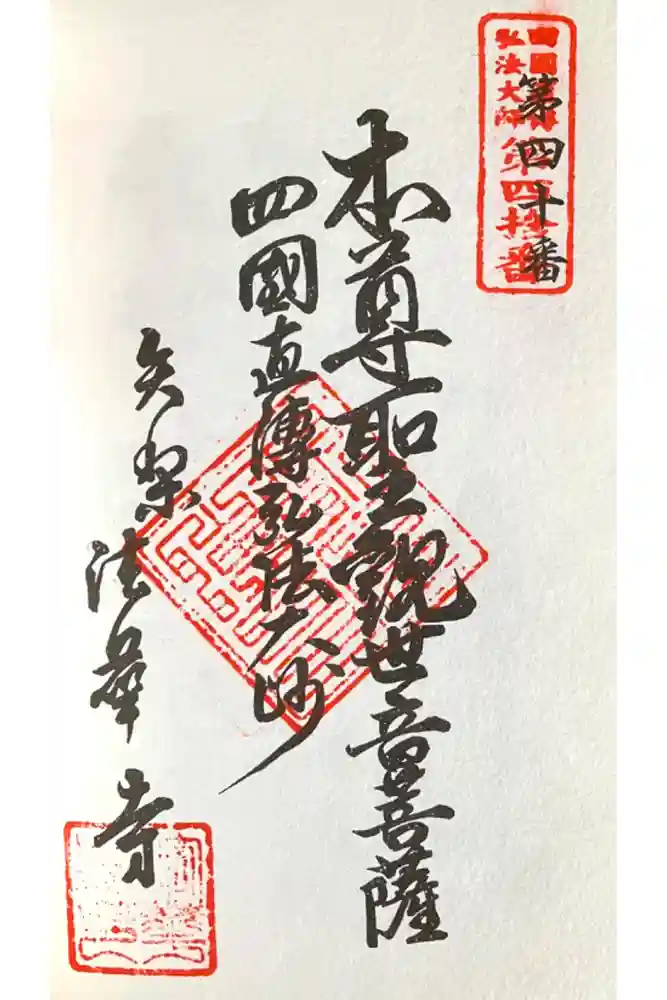 第四十番
四國直傳
弘法大師
第四拾番
本尊聖観世音菩薩
四國直傳弘法大師
矢梨法華寺